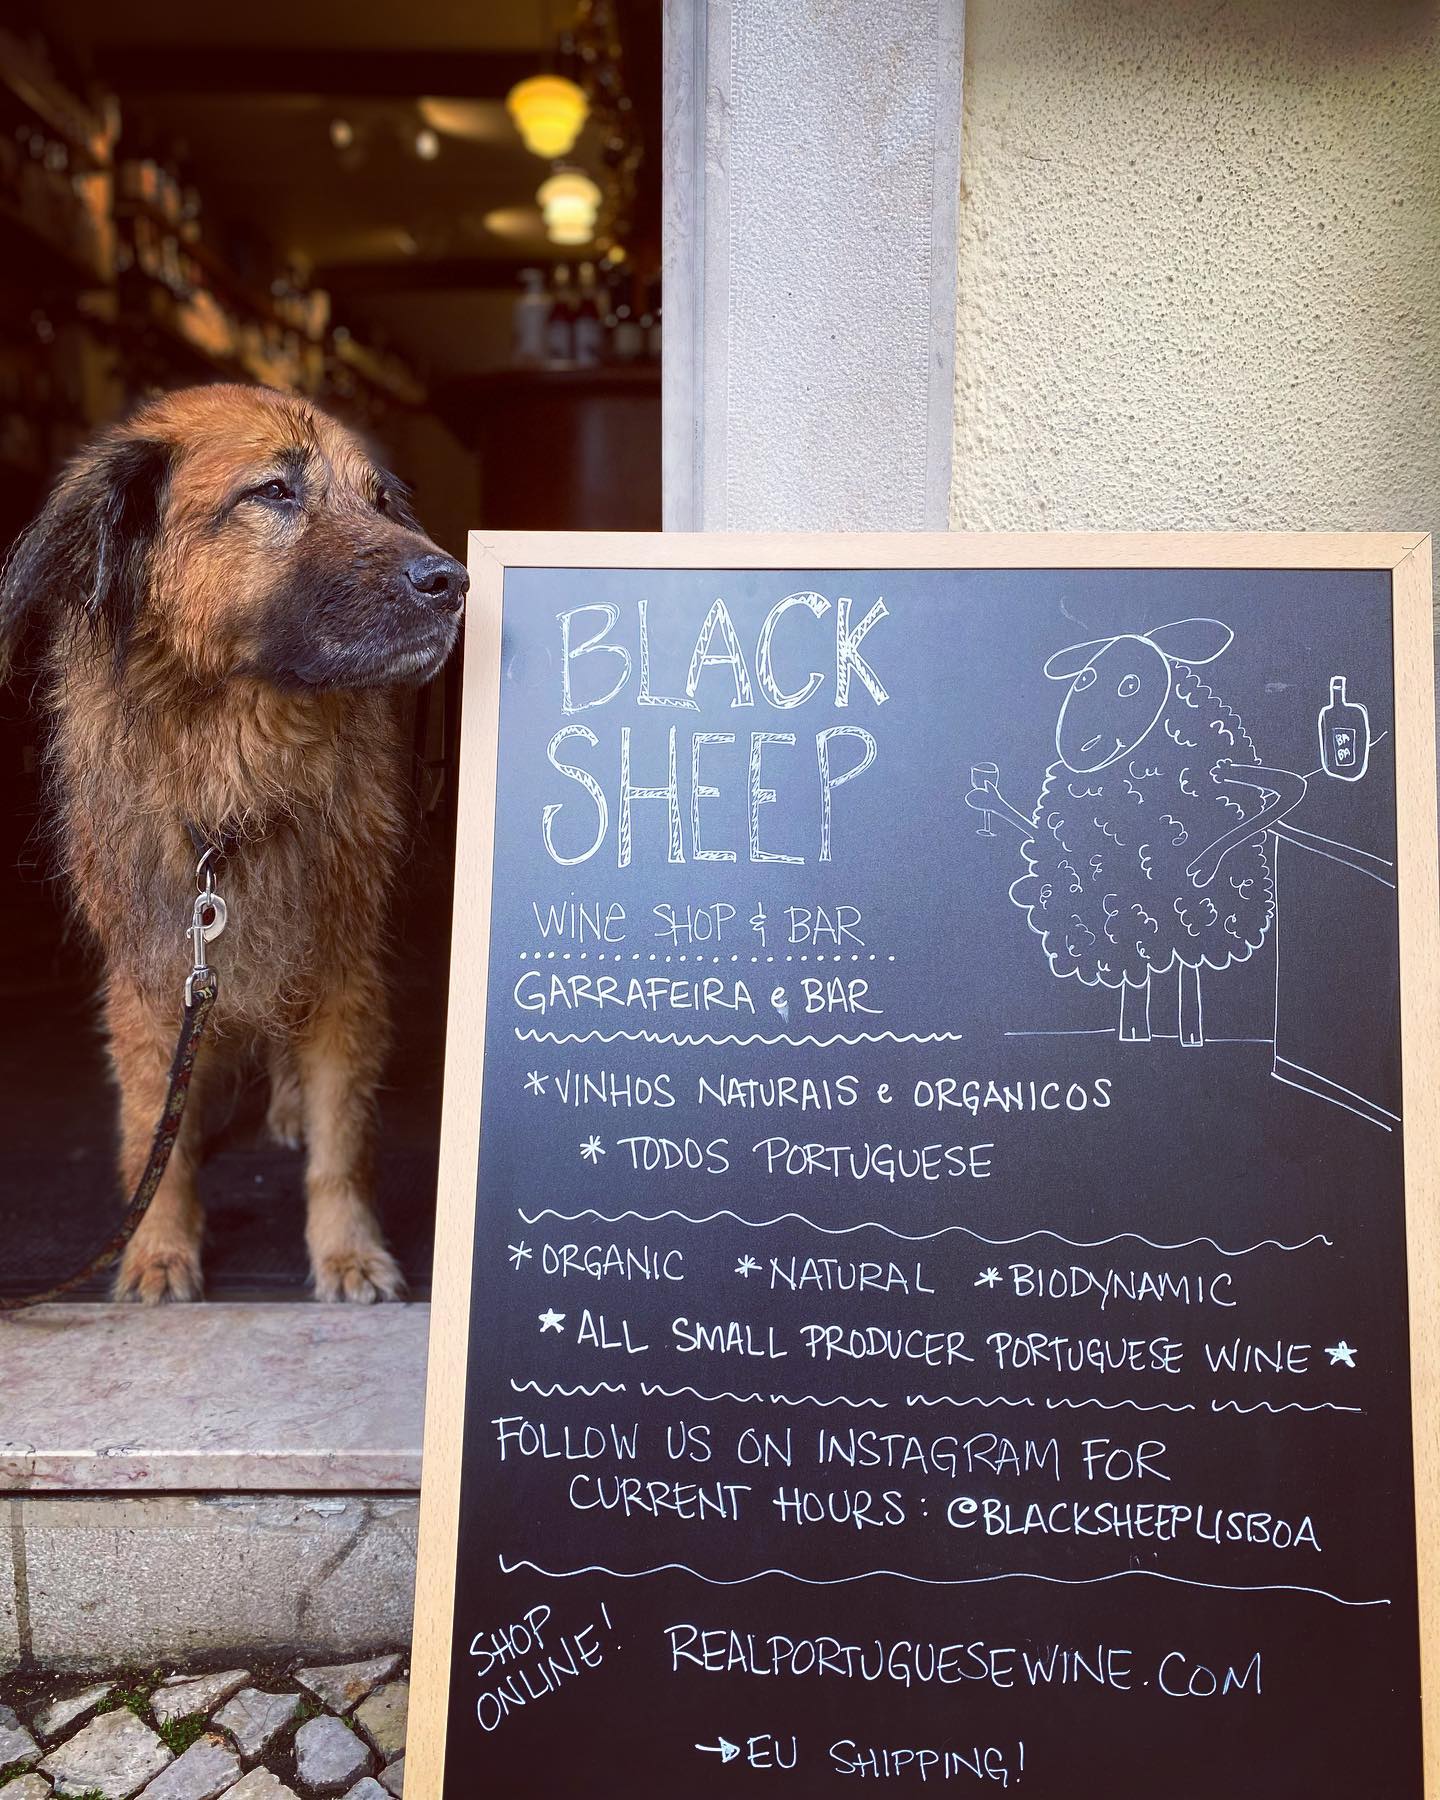 BLACK
SHEEP
BA
BA
WINE SHOP & BAR
GARRAFEIRA e BAR
*VINHOS NATURAIS e ORGANICOS
* TODOS PORTUGUESE
*ORGANIC *NATURAL *BIODYNAMIC
★ ALL SMALL PRODUCER PORTUGUESE WINE ★
FOLLOW US ON INSTAGRAM FOR
CURRENT HOURS: @BLACKSHEEPLISBOA
SHOP
ONLINE!
REALPORTUGUESEWINE.COM
→EU SHIPPING!